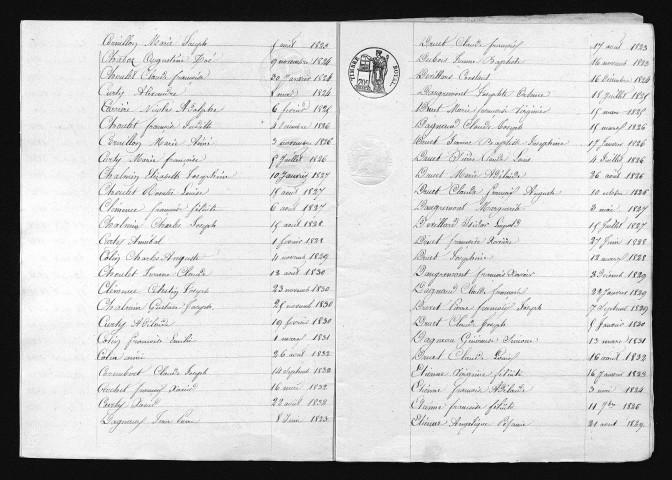 Marie Joseph 5 avril 1823
Augustine 9 novembre 1824
Choulet Claude françois 30 Janvier 1824
Curty Alexandre 1 mai 1824
Carrière Nicolas Adolphe 6 février 1825
Choulet françoise Judith 4 1826
Marie Aimé 3 novembre 1826
Curty Marie françoise 5 Juillet 1826
Chalmin Elisabeth Josephine 10 Janvier 1827
Choulet Louise 18 août 1827
Clémence françoise félicité 6 août 1827
Chalmin Charles Joseph 15 août 1828
Curty Annibal 1 février 1828
Colin Charles Auguste 4 novembre 1829
Choulet Claude 12 août 1830
Clémence Joseph 23 novembre 1830
Chalmin Gustave Joseph 25 novembre 1830
Curty Adelaïde 19 février 1830
Colin françoise Emilie 1 mars 1831
Colin aimé 26 août 1832
Claude Joseph 14 septembre 1832
Crochet françois Xavier 16 mai 1832
Curty Xavier 22 août 1832
Dagneau Jean Pierre 8 Juin 1823
TIMBRE ROYAL
Druet Claude françois 17 août 1823
Dubois Jeanne Baptiste 16 novembre 1823
Constant 16 Décembre 1824
Daugremont Josephte 18 Juillet 1825
Druet Marie françoise Virginie 15 mars 1825
Dagneau Claude Joseph 15 mars 1826
Druet Jeanne Baptiste Josephine 17 Janvier 1826
Druet Pierre Claude Louis 4 Juillet 1826
Druet Marie Adélaïde 26 août 1826
Druet Claude françois Auguste 10 octobre 1826
Daugremont Marguerite 3 mai 1827
Victor Léopold 15 Juillet 1827
Druet françoise Xavière 27 Juin 1828
Druet Josephine 12 mars 1828
Daugremont françois Xavier 23 Décemb 1829
Dagneaud Claude françois 22 Janvier 1829
Druet Pierre françois Joseph 7 Septemb 1829
Druet Claude Joseph 5 Janvier 1830
Dagneau Simone 13 mars 1831
Druet Claude Louis 16 août 1832
Etienne félicité 16 Janvier 1823
Etienne françoise Adélaïde 3 mai 1824
Etienne françoise félicité 11 9bre 1826
Etienne Angélique 21 août 1829